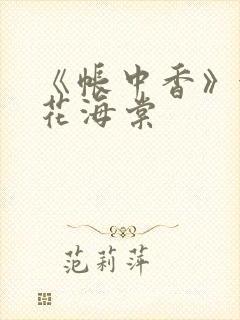 《帐中香》
花海棠
范莉萍